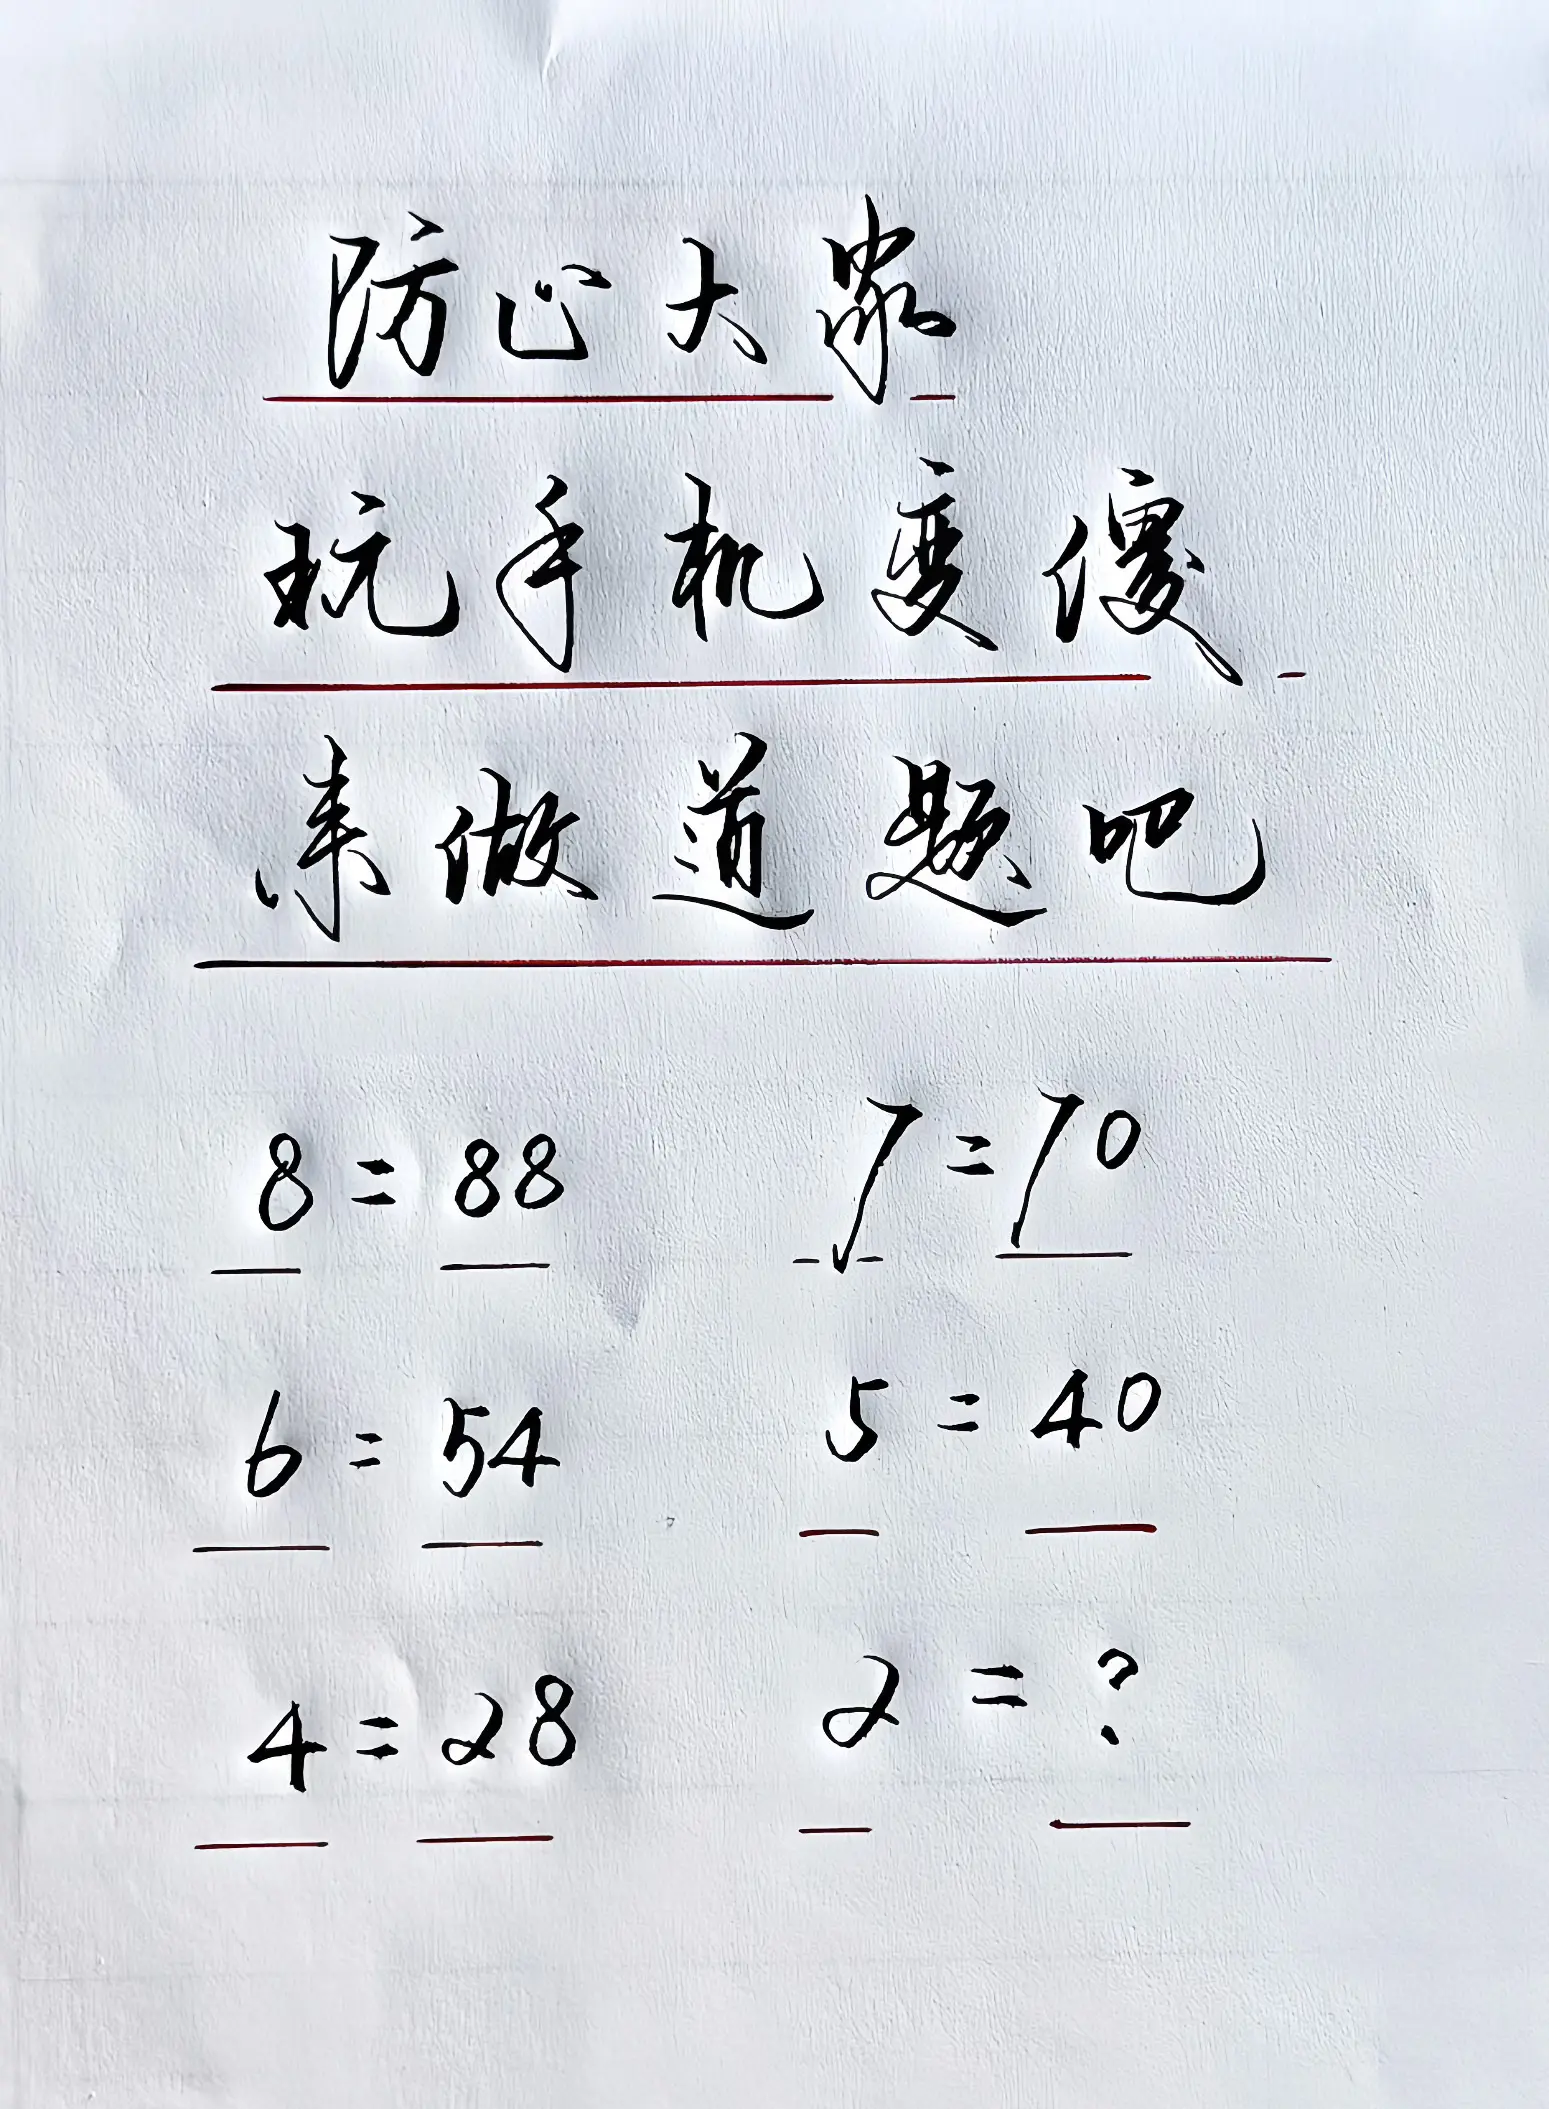 防止大家
玩手机变傻
来做道题吧
8=88 7=70
6=54 5=40
4=28 2=?